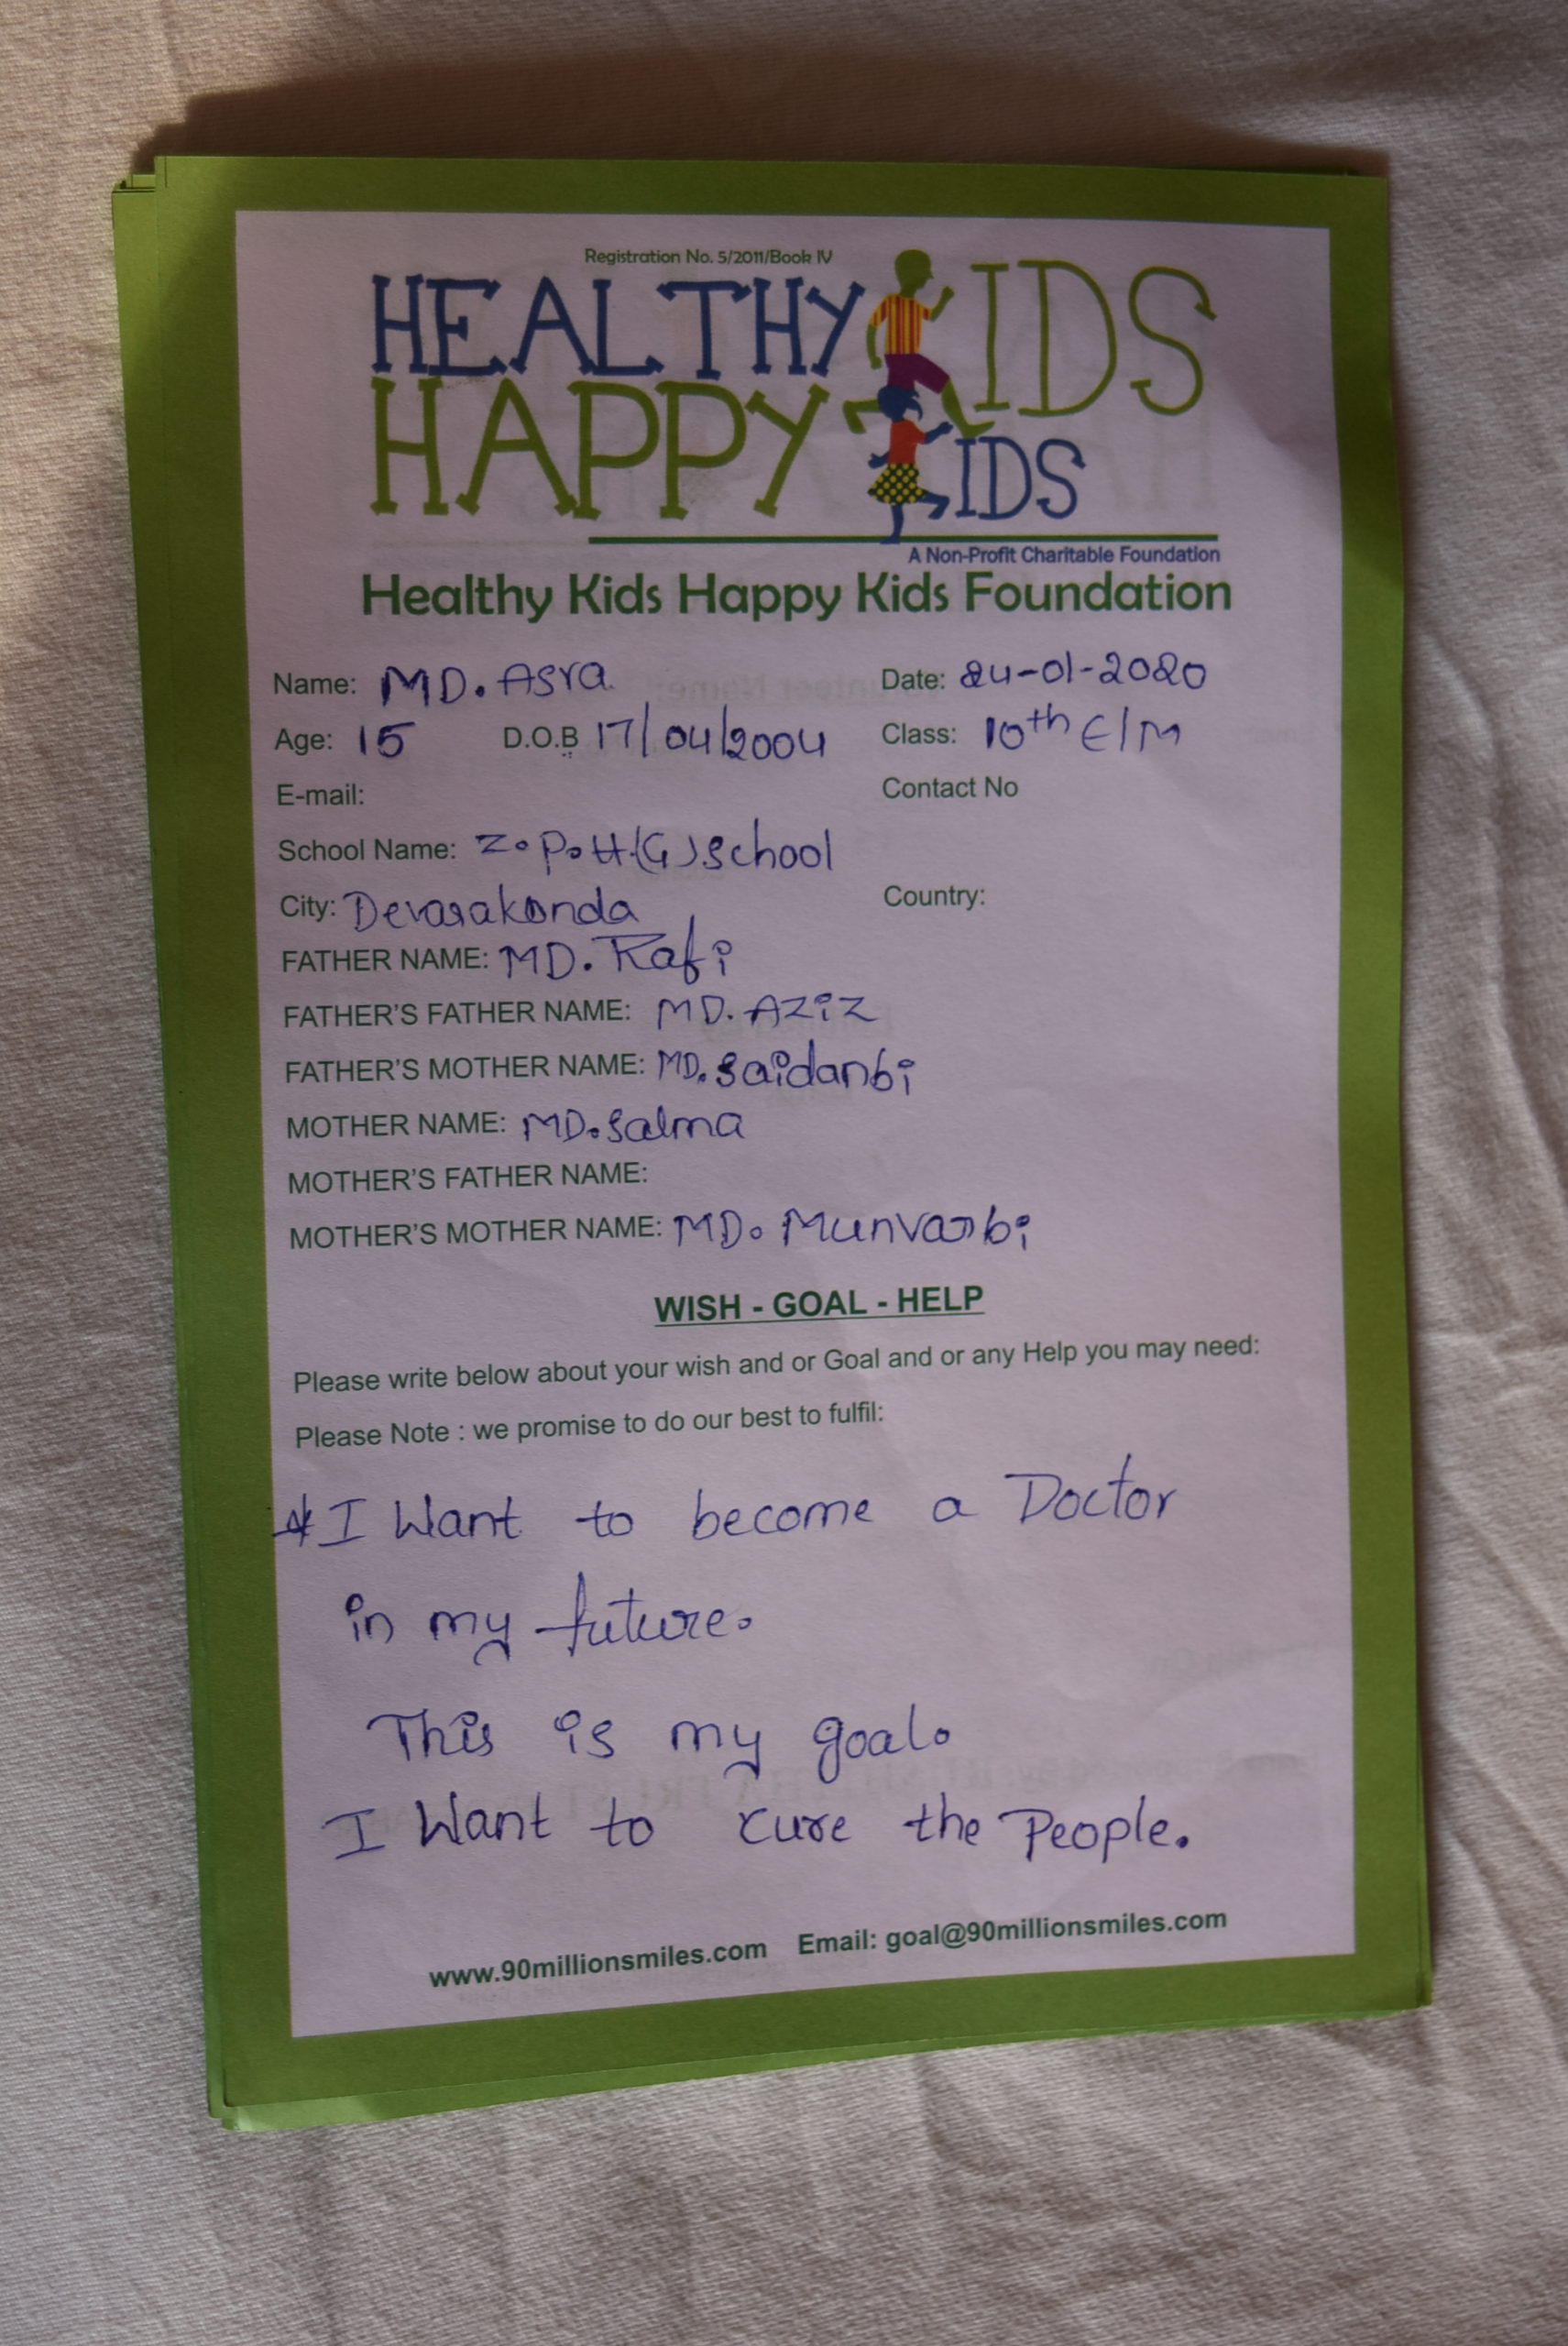 Registration No. 5/2011/Book IV
HEALTHY KIDS
HAPPY KIDS
A Non-Profit Charitable Foundation
Healthy Kids Happy Kids Foundation
Name: MD. Asra Date: 24-01-2020
Age: 15 D.O.B 17/04/2004 Class: 10th E/M
E-mail: Contact No
School Name: Z.P.H.(G).school
City: Devarakonda Country:
FATHER NAME: MD. Rafi
FATHER'S FATHER NAME: MD. Aziz
FATHER'S MOTHER NAME: MD. Saidanbi
MOTHER NAME: MD. Salma
MOTHER'S FATHER NAME:
MOTHER'S MOTHER NAME: MD. Munvarbi
WISH - GOAL - HELP
Please write below about your wish and or Goal and or any Help you may need:
Please Note : we promise to do our best to fulfil:
* I Want to become a Doctor
in my future.
This is my goal.
I Want to cure the People.
www.90millionsmiles.com Email: goal@90millionsmiles.com